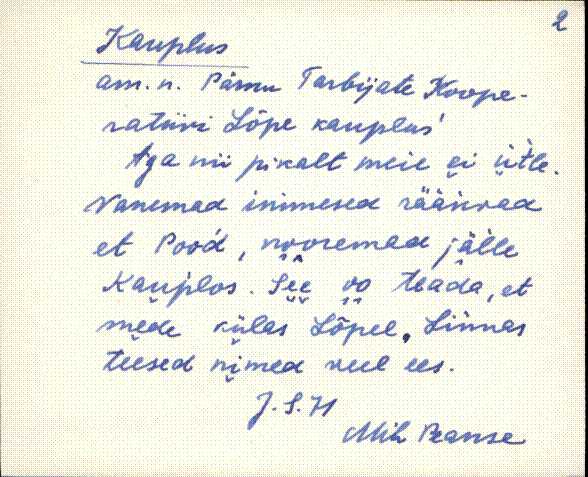 2
Kauplus
am. n. Pärnu Tarbijate Koope-
ratiivi Lõpe kauplus'
Aga nii pikalt meie ei ütle.
Vanemad inimesed räänvad
et Pood, nooremad jälle
Kauplos. See oo teada, et
mede külas Lõpel, Linnas
teesed nimed veel ees.
J. S. H
Mih